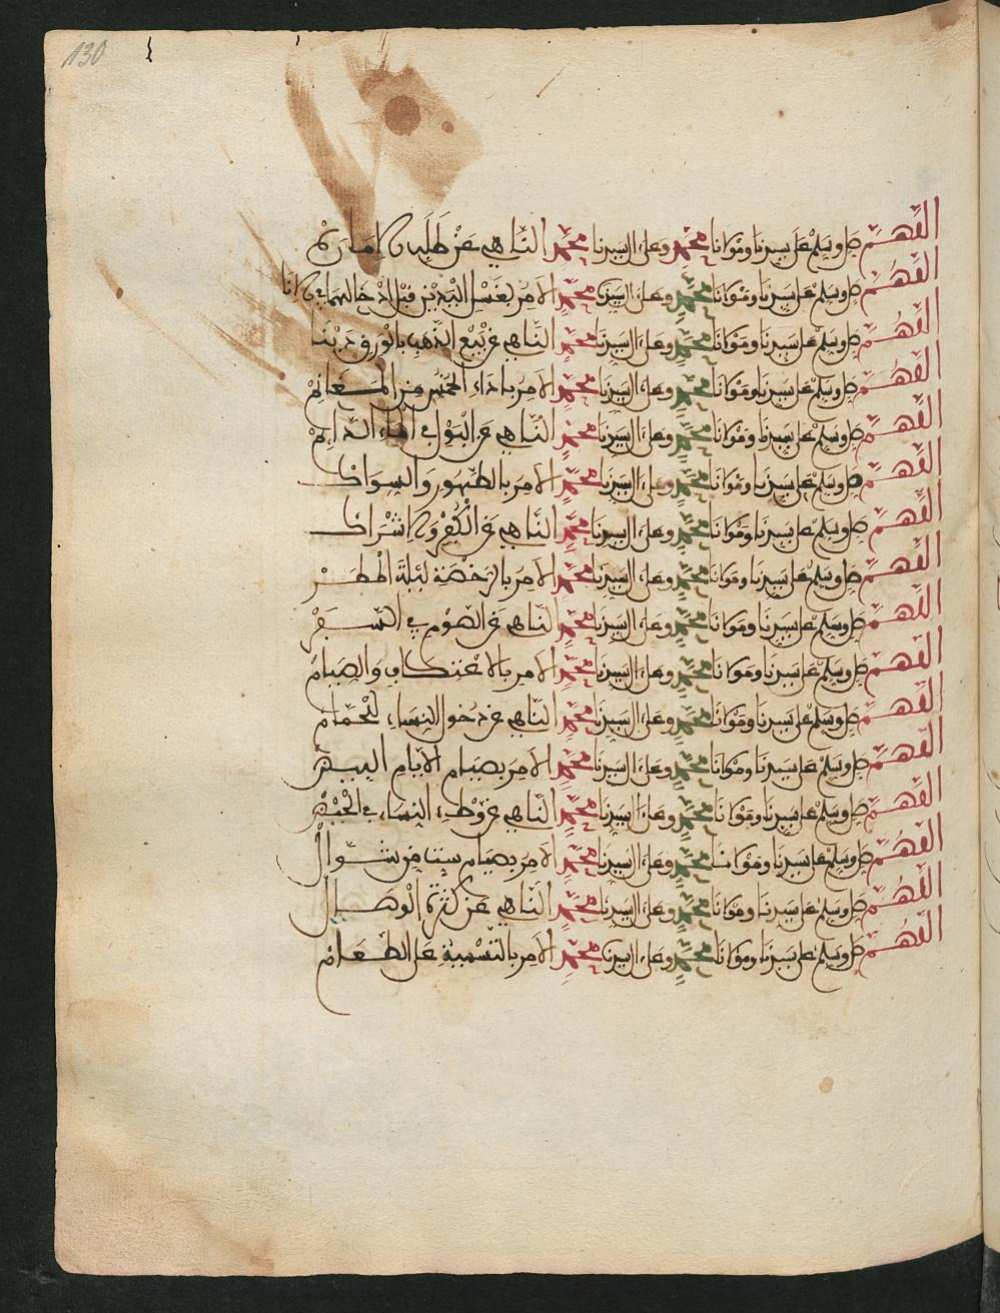 130
اللهم صل وسلم على سيدنا ومولانا محمد وعلى ءال سيدنا محمد الناهي عن طلب الامارة
اللهم صل وسلم على سيدنا ومولانا محمد وعلى ءال سيدنا محمد الامر بغسل اليدين قبل ادخالهما في الانا
اللهم صل وسلم على سيدنا ومولانا محمد وعلى ءال سيدنا محمد الناهي عن بيع الذهب بالورق دينا
اللهم صل وسلم على سيدنا ومولانا محمد وعلى ءال سيدنا محمد الامر باداء الخمس من المغانم
اللهم صل وسلم على سيدنا ومولانا محمد وعلى ءال سيدنا محمد الناهي عن البول في الماء الدايم
اللهم صل وسلم على سيدنا ومولانا محمد وعلى ءال سيدنا محمد الامر بالطهور والسواك
اللهم صل وسلم على سيدنا ومولانا محمد وعلى ءال سيدنا محمد الناهي عن الكفر والاشراك
اللهم صل وسلم على سيدنا ومولانا محمد وعلى ءال سيدنا محمد الامر بالرخصة ليلة المطر
اللهم صل وسلم على سيدنا ومولانا محمد وعلى ءال سيدنا محمد الناهي عن الصوم في السفر
اللهم صل وسلم على سيدنا ومولانا محمد وعلى ءال سيدنا محمد الامر بالاعتكاف والصيام
اللهم صل وسلم على سيدنا ومولانا محمد وعلى ءال سيدنا محمد الناهي عن دخول النساء للحمام
اللهم صل وسلم على سيدنا ومولانا محمد وعلى ءال سيدنا محمد الامر بصيام الايام البيض
اللهم صل وسلم على سيدنا ومولانا محمد وعلى ءال سيدنا محمد الناهي عن وطء النساء في الحيض
اللهم صل وسلم على سيدنا ومولانا محمد وعلى ءال سيدنا محمد الامر بصيام ست من شوال
اللهم صل وسلم على سيدنا ومولانا محمد وعلى ءال سيدنا محمد الناهي عن كثرة الوصال
اللهم صل وسلم على سيدنا ومولانا محمد وعلى ءال سيدنا محمد الامر بالتسمية على الطعام